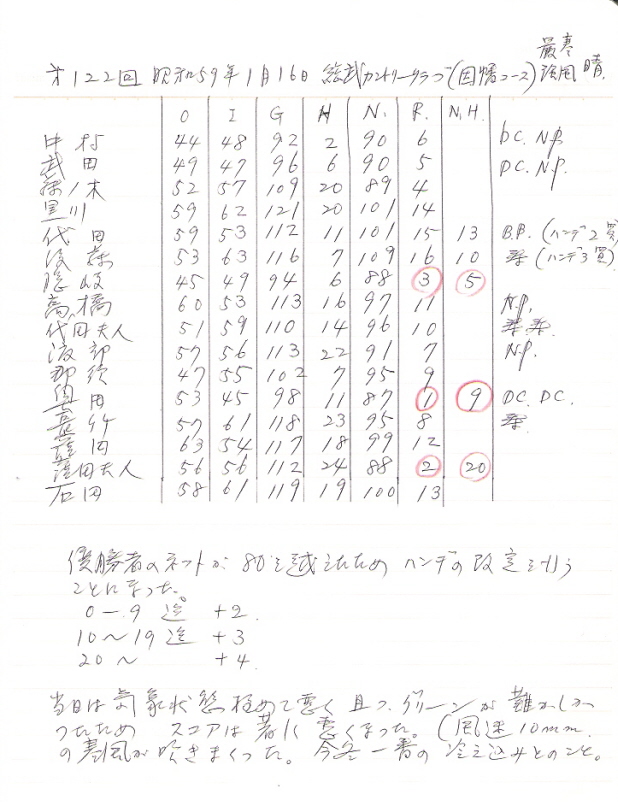 第122回 昭和59年1月16日 総武カントリークラブ(因幡コース) 最寒 強風 晴.
O I G H N. R. N.H.
中村 44 48 92 2 90 6 DC. N.P.
武田 49 47 96 6 90 5 DC. N.P.
ノ木 52 57 109 20 89 4
黒川 59 62 121 20 101 14
代田 59 53 112 11 101 15 13 B.B. (ハンデ2買)
後藤 53 63 116 7 109 16 10 (ハンデ3買)
隠岐 45 49 94 6 88 3 5
高橋 60 53 113 16 97 11 N.P.
代田夫人 51 59 110 14 96 10
渡部 57 56 113 22 91 7 N.P.
那須 47 55 102 7 95 9
奥田 53 45 98 11 87 1 9 DC. DC.
竹 57 61 118 23 95 8
田 63 54 117 18 99 12
田夫人 56 56 112 24 88 2 20
石田 58 61 119 19 100 13
優勝者のネットが 80を越えたため ハンデの改定を行う
ことになった。
0-9 迄 +2.
10〜19 迄 +3
20〜 +4.
当日は気象状態極めて悪く 且つ.グリーンが難かしか
つたため スコアは著しく悪くなった。(風速10mm.
の寒風が吹きまくった。今冬一番の冷え込みとのこと。